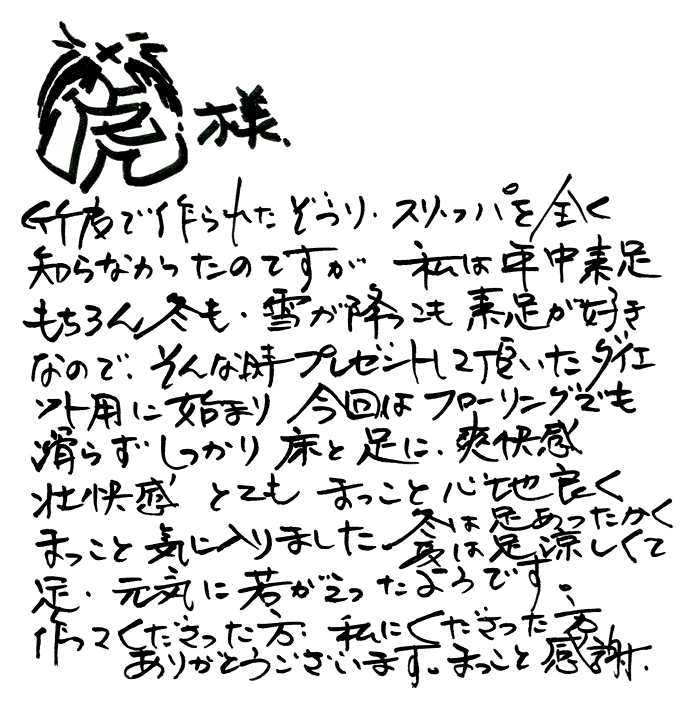 虎様、
竹皮で作られたぞうり・スリッパを全く
知らなかったのですが 私は年中素足
もちろん冬も・雪が降っても素足が好き
なので、そんな時プレゼントして頂いたダイエ
ット用に始まり 今回はフローリングでも
滑らずしっかり床と足に、爽快感
壮快感 とても まっこと心地良く
まっこと気に入りました 冬は足あったかく
夏は足涼しくて
足・元気に若がえったようです。
作ってくださった方・私にくださった方
ありがとうございます。まっこと感謝、